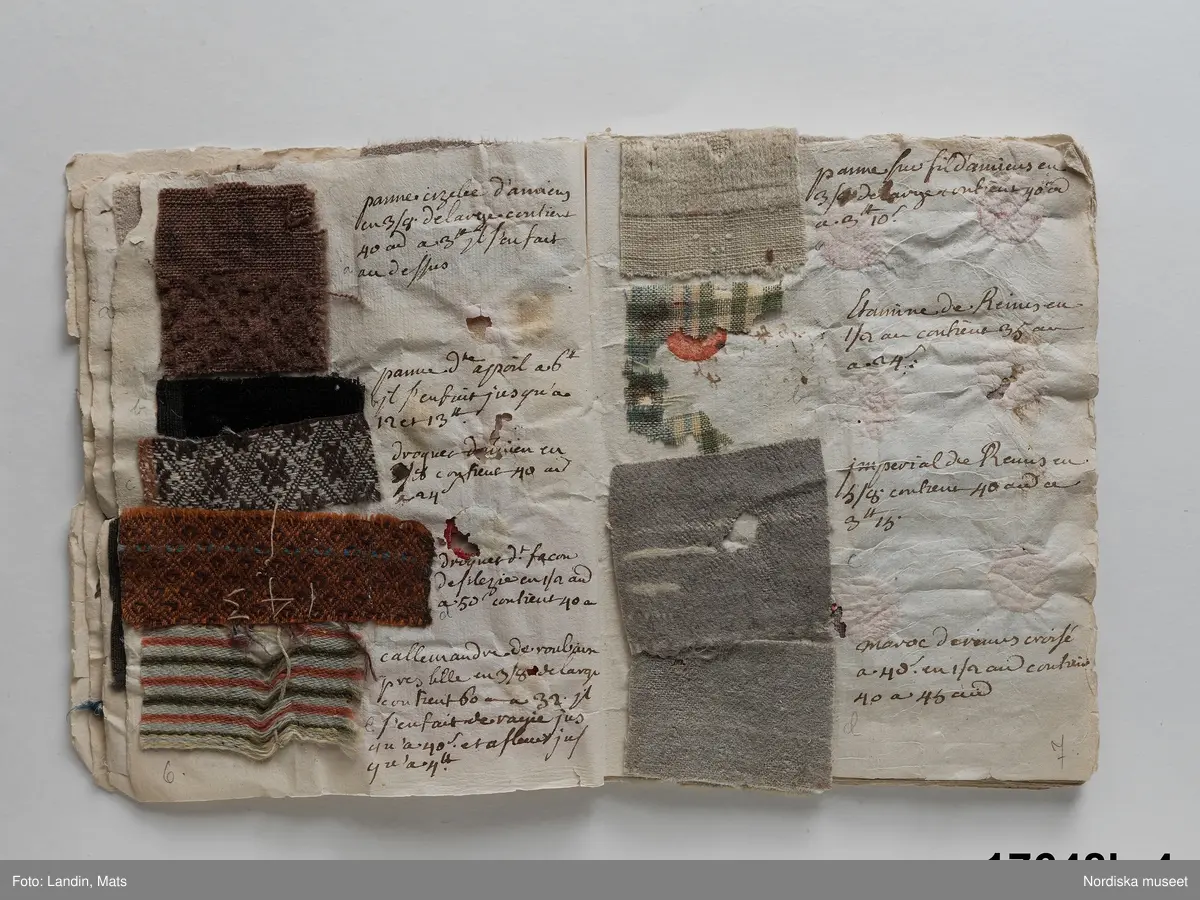 panne cizelée d'amiens
en 3/8 de large contient
40 au a 3tt jl s'en fait
au dessus
panne dte a poil a 6tt
jl s'enfait jusqu'a
12 et 13tt
droguet d'amien en
contient 40 au
a 24
droguet dt façon
de silezie en 1/2 au
a 50s contient 40 a
callemandre de roubaix
pres lille en 3/8 de large
contient 60 a 38s jl
s'enfait de rayie jus
qu'a 40s et a fleurs jus
qu'a 4tt
6.
panne sur fil d'amiens en
3/8 de large contient 40 a
a 3tt 10s
Etamine de Reims en
1/2 au contient 35 au
a 24s
imperial de Reims en
5/8 contient 40 au a
3tt 15
maroc de reims croisé
a 48s en 1/2 au contient
40 a 45 au
d
7.
Foto: Landin, Mats
Nordiska museet